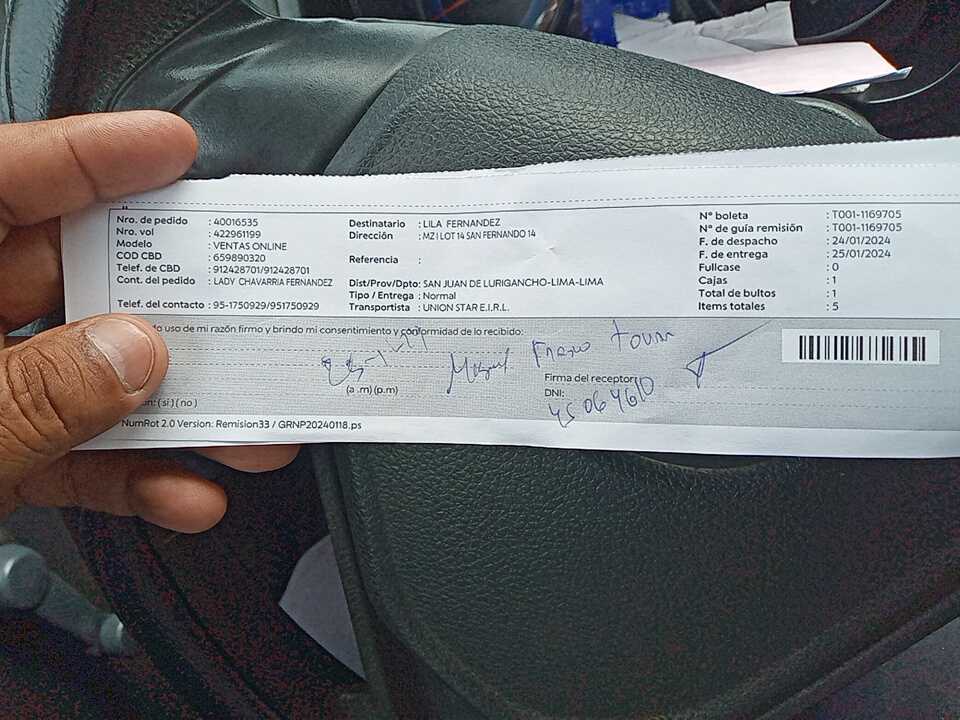 Nro. de pedido : 40016535
Nro. vol : 422961199
Modelo : VENTAS ONLINE
COD CBD : 659890320
Telef. de CBD : 912428701/912428701
Cont. del pedido : LADY CHAVARRIA FERNANDEZ
Telef. del contacto : 95-1750929/951750929
Destinatario : LILA FERNANDEZ
Dirección : MZ I LOT 14 SAN FERNANDO 14
Referencia :
Dist/Prov/Dpto: SAN JUAN DE LURIGANCHO-LIMA-LIMA
Tipo / Entrega : Normal
Transportista : UNION STAR E.I.R.L.
N° boleta : T001-1169705
N° de guía remisión : T001-1169705
F. de despacho : 24/01/2024
F. de entrega : 25/01/2024
Fullcase : 0
Cajas : 1
Total de bultos : 1
Items totales : 5
uso de mi razón firmo y brindo mi consentimiento y conformidad de lo recibido:
(a .m) (p.m)
Firma del receptor:
DNI:
( si ) ( no )
NumRot 2.0 Version: Remision33 / GRNP20240118.ps